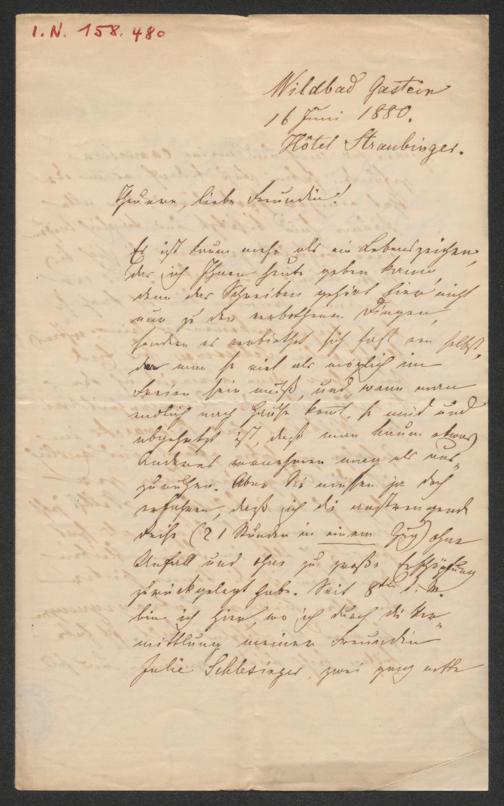 I. N. 158.480
Wildbad Gastein
16 Juni 1880.
Hôtel Straubinger.
Theuere, liebe Freundin!
Es ist kaum mehr als ein Lebenszeichen,
das ich Ihnen heute geben kann,
denn das Schreiben gehört hier nicht
nur zu den verbothenen Dingen,
sondern es verbiethet sich fast von selbst,
da man so viel als möglich im
Freien sein muß, und wenn man
endlich nach Hause komt, so müd und
abgehetzt ist, daß man kaum etwas
Anderes vornehmen mag als aus-
zuruhen. Aber Sie müssen ja doch
erfahren, daß ich die anstrengende
Reise (21 Stunden in einem Zug) ohne
Unfall und ohne zu große Erschöpfung
zurückgelegt habe. Seit 8ten d. M.
bin ich hier, wo ich durch die Ver-
mittlung meiner Freundin
Julie Schlesinger zwei ganz nette